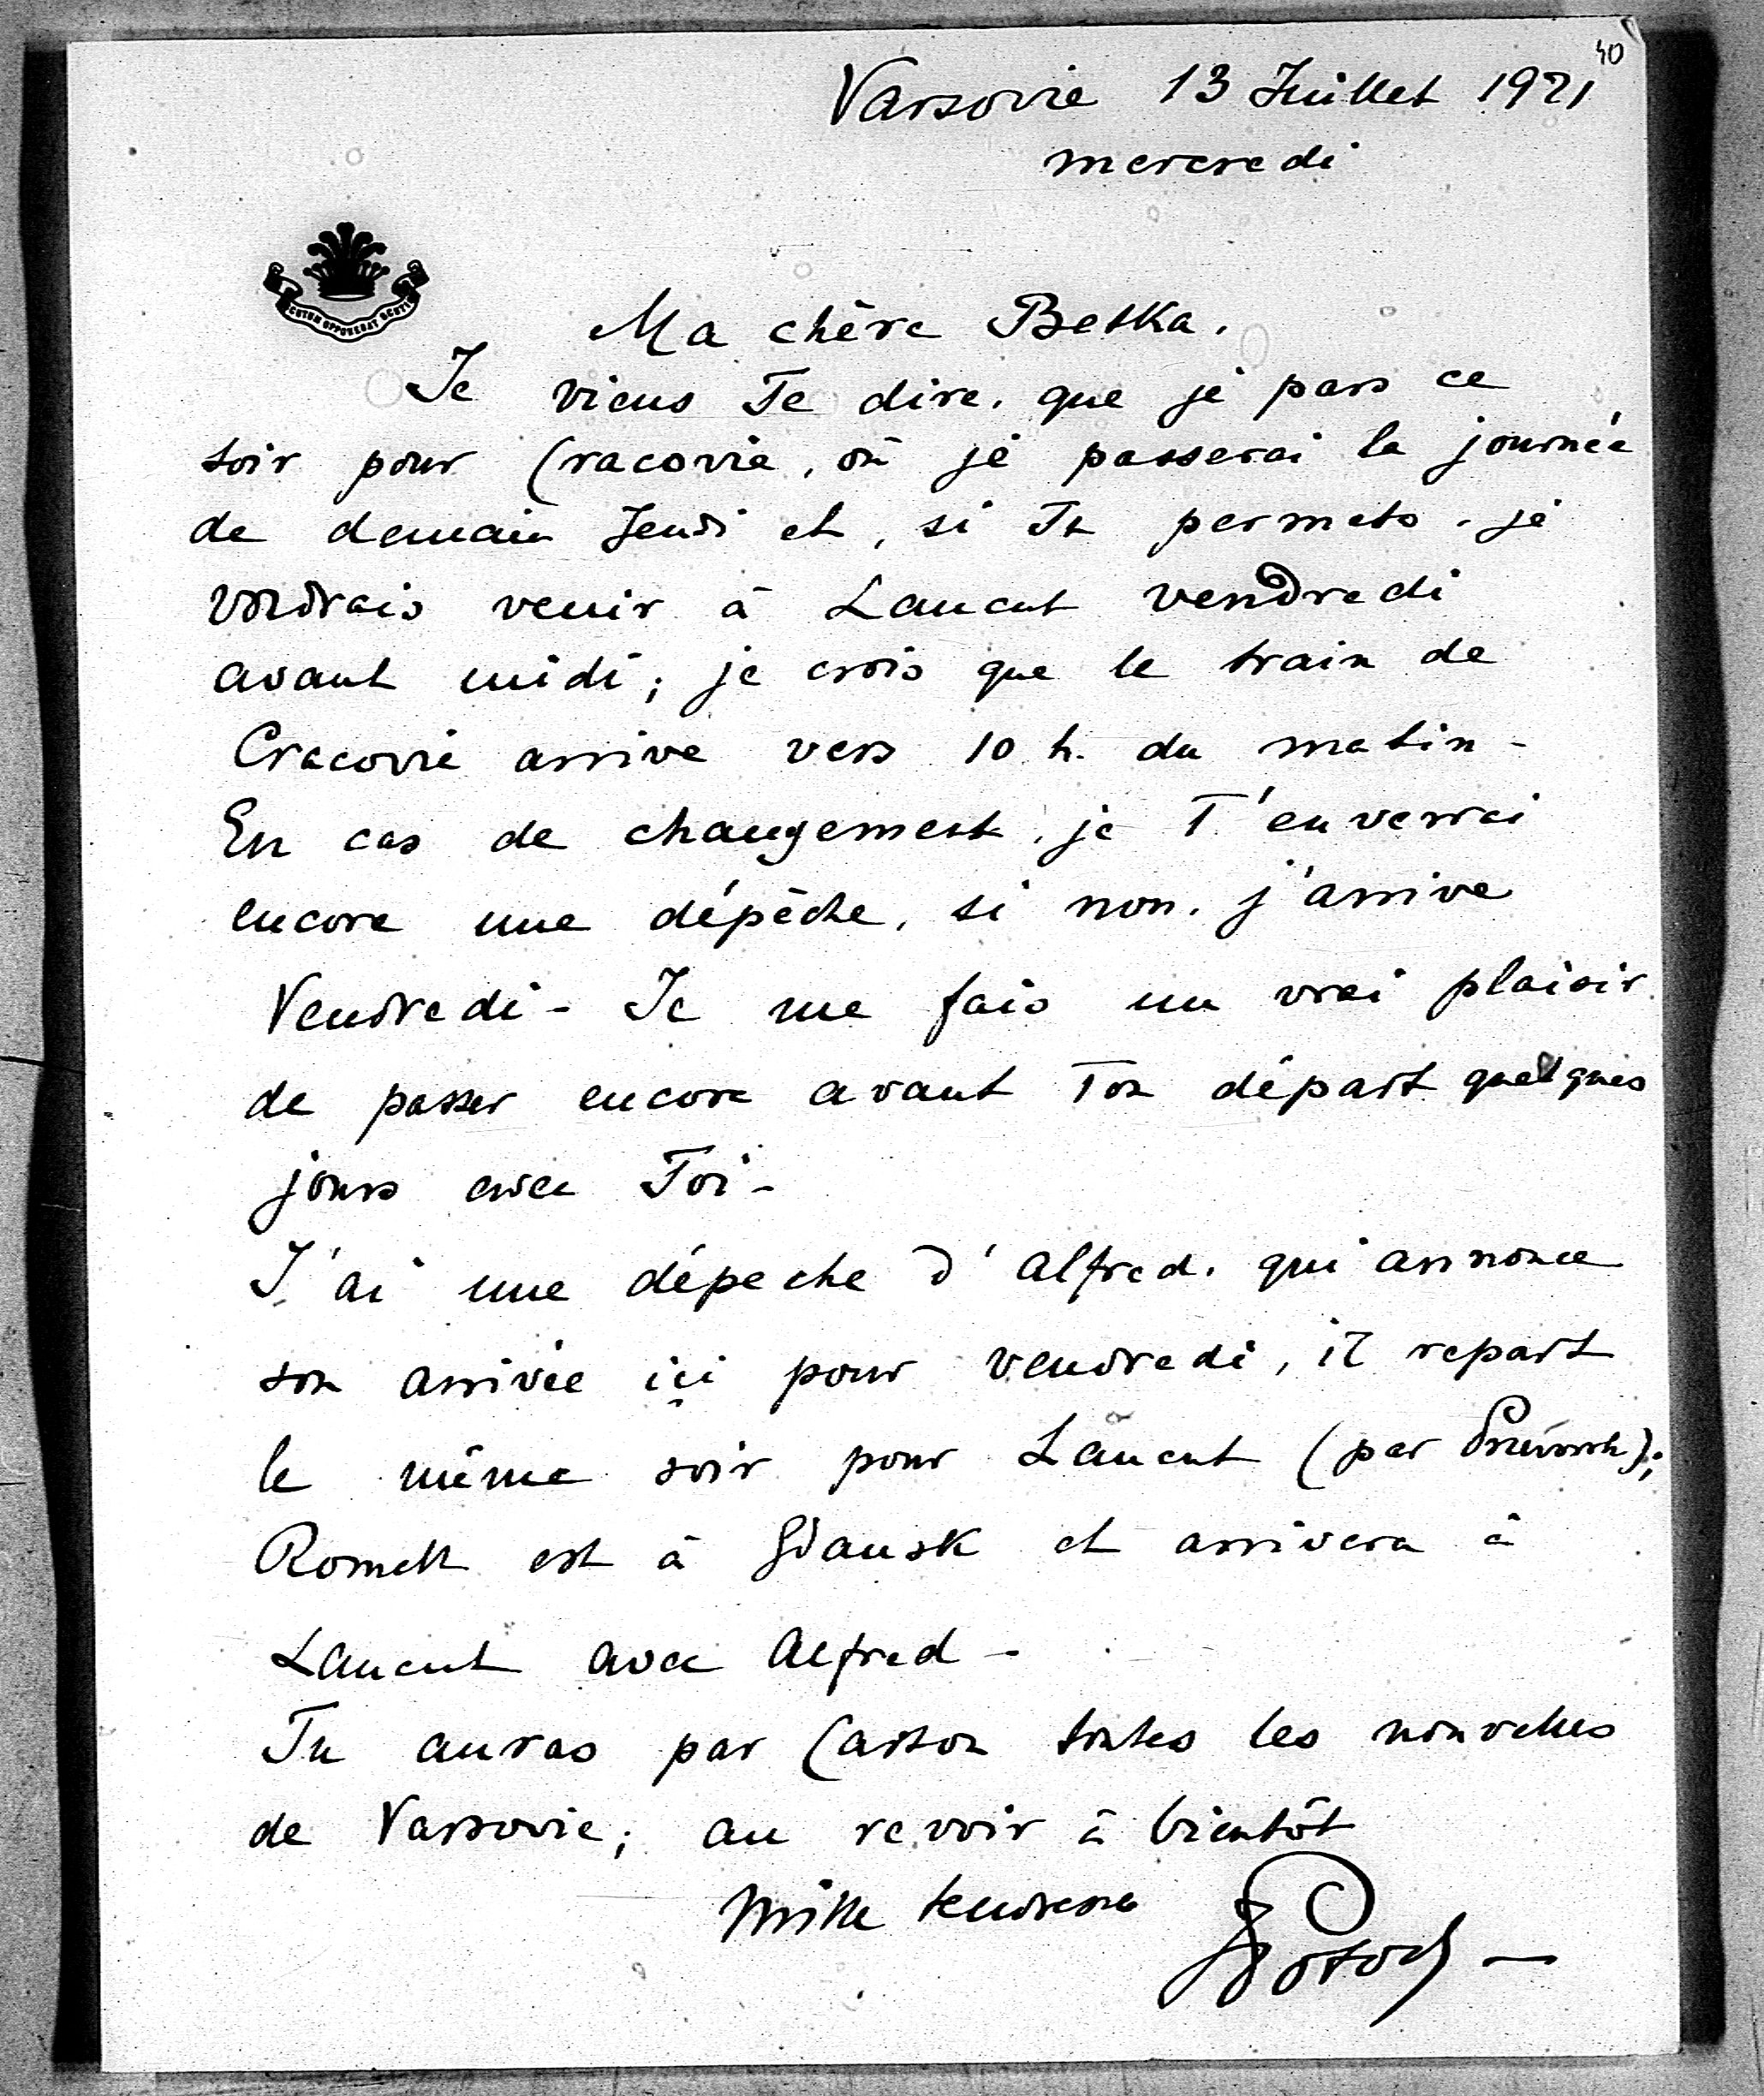 40
Varsovie 13 Juillet 1921
mercredi
SCUTUM OPPONEBAT SCUTIS
Ma chère Betka.
Je viens Te dire, que je pars ce
soir pour Cracovie, où je passerai la journée
de demain Jeudi et, si Tu permets, je
voudrais venir à Lancut vendredi
avant midi; je crois que le train de
Cracovie arrive vers 10 h. du matin -
En cas de changement, je T'enverrai
encore une dépêche, si non, j'arrive
Vendredi - Je me fais un vrai plaisir
de passer encore avant Ton départ quelques
jours avec Toi -
J'ai une dépeche d'Alfred, qui annonce
son arrivée içi pour vendredi, il repart
le même soir pour Lancut (par Przeworsk);
est à Gdansk et arrivera à
Lancut avec Alfred -
Tu auras par Carton toutes les nouvelles
de Varsovie; au revoir à bientôt
Mille tendresses
Potocki